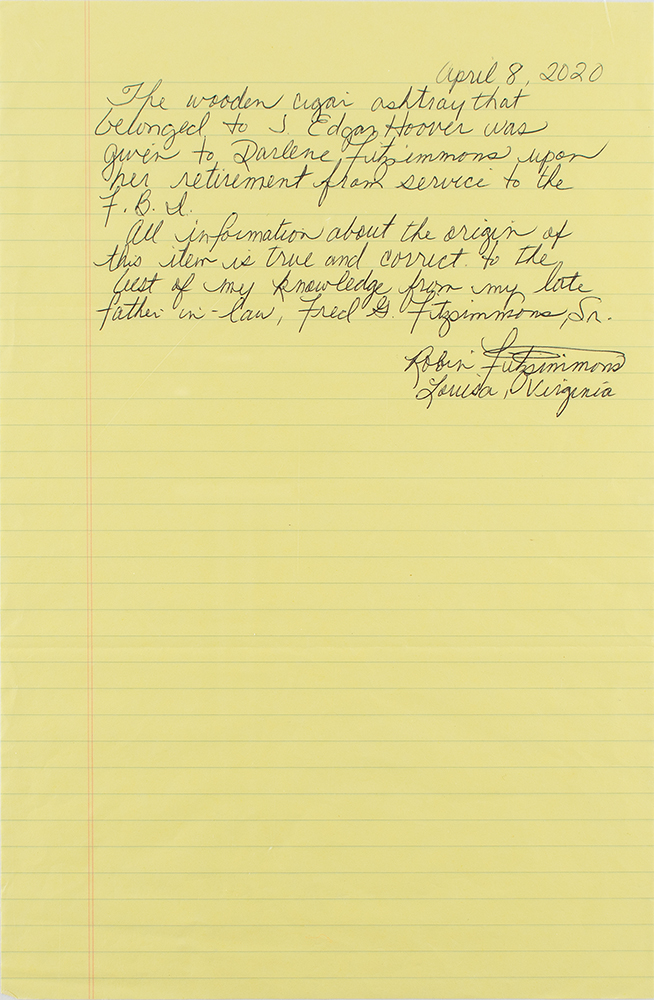 April 8, 2020
The wooden cigar ashtray that
belonged to J. Edgar Hoover was
given to Darlene Fitzsimmons upon
her retirement from service to the
F. B. I.
All information about the origin of
this item is true and correct to the
best of my knowledge from my late
father-in-law, Fred G. Fitzsimmons, Sr.
Robin Fitzsimmons
Louisa, Virginia